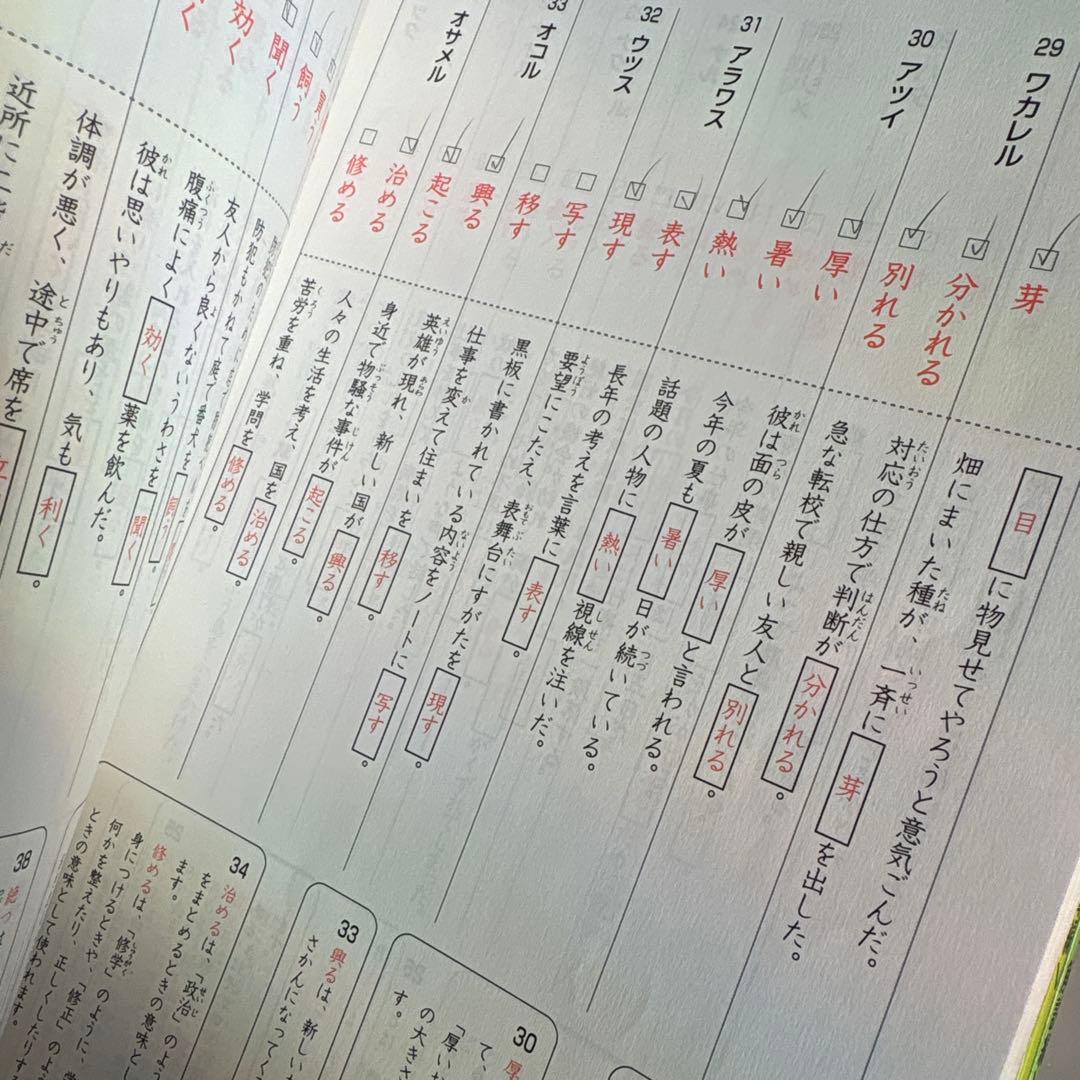 目に物見せてやろうと意気ごんだ。
芽
畑にまいた種が、一斉に芽を出した。
29 ワカレル
分かれる
対応の仕方で判断が分かれる。
別れる
急な転校で親しい友人と別れる。
30 アツイ
厚い
彼は面の皮が厚いと言われる。
暑い
今年の夏も暑い日が続いている。
熱い
話題の人物に熱い視線を注いだ。
31 アラワス
表す
長年の考えを言葉に表す。
現す
要望にこたえ、表舞台にすがたを現す。
32 ウツス
写す
黒板に書かれている内容をノートに写す。
移す
仕事を変えて住まいを移す。
33 オコル
興る
英雄が現れ、新しい国が興る。
起こる
身近で物騒な事件が起こる。
オサメル
治める
人々の生活を考え、国を治める。
修める
苦労を重ね、学問を修める。
買う
飼う
防犯もかねて庭で番犬を飼う
聞く
友人から良くないうわさを聞く。
効く
腹痛によく効く薬を飲んだ。
彼は思いやりもあり、気も利く。
体調が悪く、途中で席を
近所に
30
て、
「厚い
の大きさ
す。
33
興るは、新しい
さかんになってく
34
治めるは、「政治」のよう
をまとめるときの意味とし
ます。
修めるは、「修学」のように、学
身につけるときや、「修正」のよう
何かを整えたり、正しくしたりする
ときの意味として使われます。
38